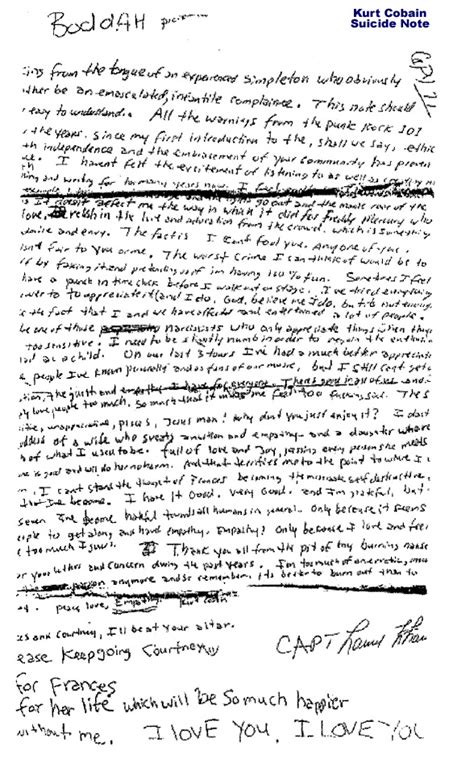 Kurt Cobain
Suicide Note
BoddAH
from the tongue of an experienced simpleton who obviously
be an emasculated, infantile complainee. This note should
easy to understand. All the warnings from the punk rock 101
the years, since my first introduction to the, shall we say, ethic
independence and the embracement of your community has proven
I havent felt the excitement of listening to as well as
and writing for too many years now. I feel
go out and the manic roar of the
it doesnt affect me the way in which it did for Freddy Mercury who
love, relish in the love and adoration from the crowd. which is something
and envy. The fact is I cant fool you. Any one of you.
isnt fair to you or me. The worst crime I can think of would be to
by faking it and pretending as if im having 100% fun. Sometimes I feel
have a punch in time clock before I walk out on stage. I've tried everything
power to appreciate it (and I do. God, believe me I do, but its not enough.
the fact that I and we have affected and entertained a lot of people.
be one of those narcissists who only appreciate things when they
too sensitive. I need to be slightly numb in order to regain the
as a child. On our last 3 tours I've had a much better
people I've known personally and as fans of our music, but I still cant
the guilt and empathy I have for everyone. Theres good in all of us and
love people too much. So much that it makes me feel too fucking sad. The
unappreciative, pisces, Jesus man! why dont you just enjoy it? I dont
of a wife who sweats ambition and empathy and a daughter who
of what I used to be. full of love and joy, kissing every person she meets
is good and will do her no harm. And that terrifies me to the point to where I
I cant stand the thought of Frances becoming the miserable self destructive,
I've become. I have it Good. very Good. and I'm grateful, but
seven I've become hateful towards all humans in general. Only because it seems
to get along and have empathy. Empathy! Only because I love and feel
too much I guess. Thank you all from the pit of my burning nause
your letters and concern during the past years. I'm too much of an erratic,
anymore and so remember, its better to burn out than to
peace, love, Empathy. Kurt Cobain
and Courtney, I'll be at your altar.
Keep going Courtney
for Frances
for her life which will be so much happier
without me. I LOVE YOU. I LOVE YOU